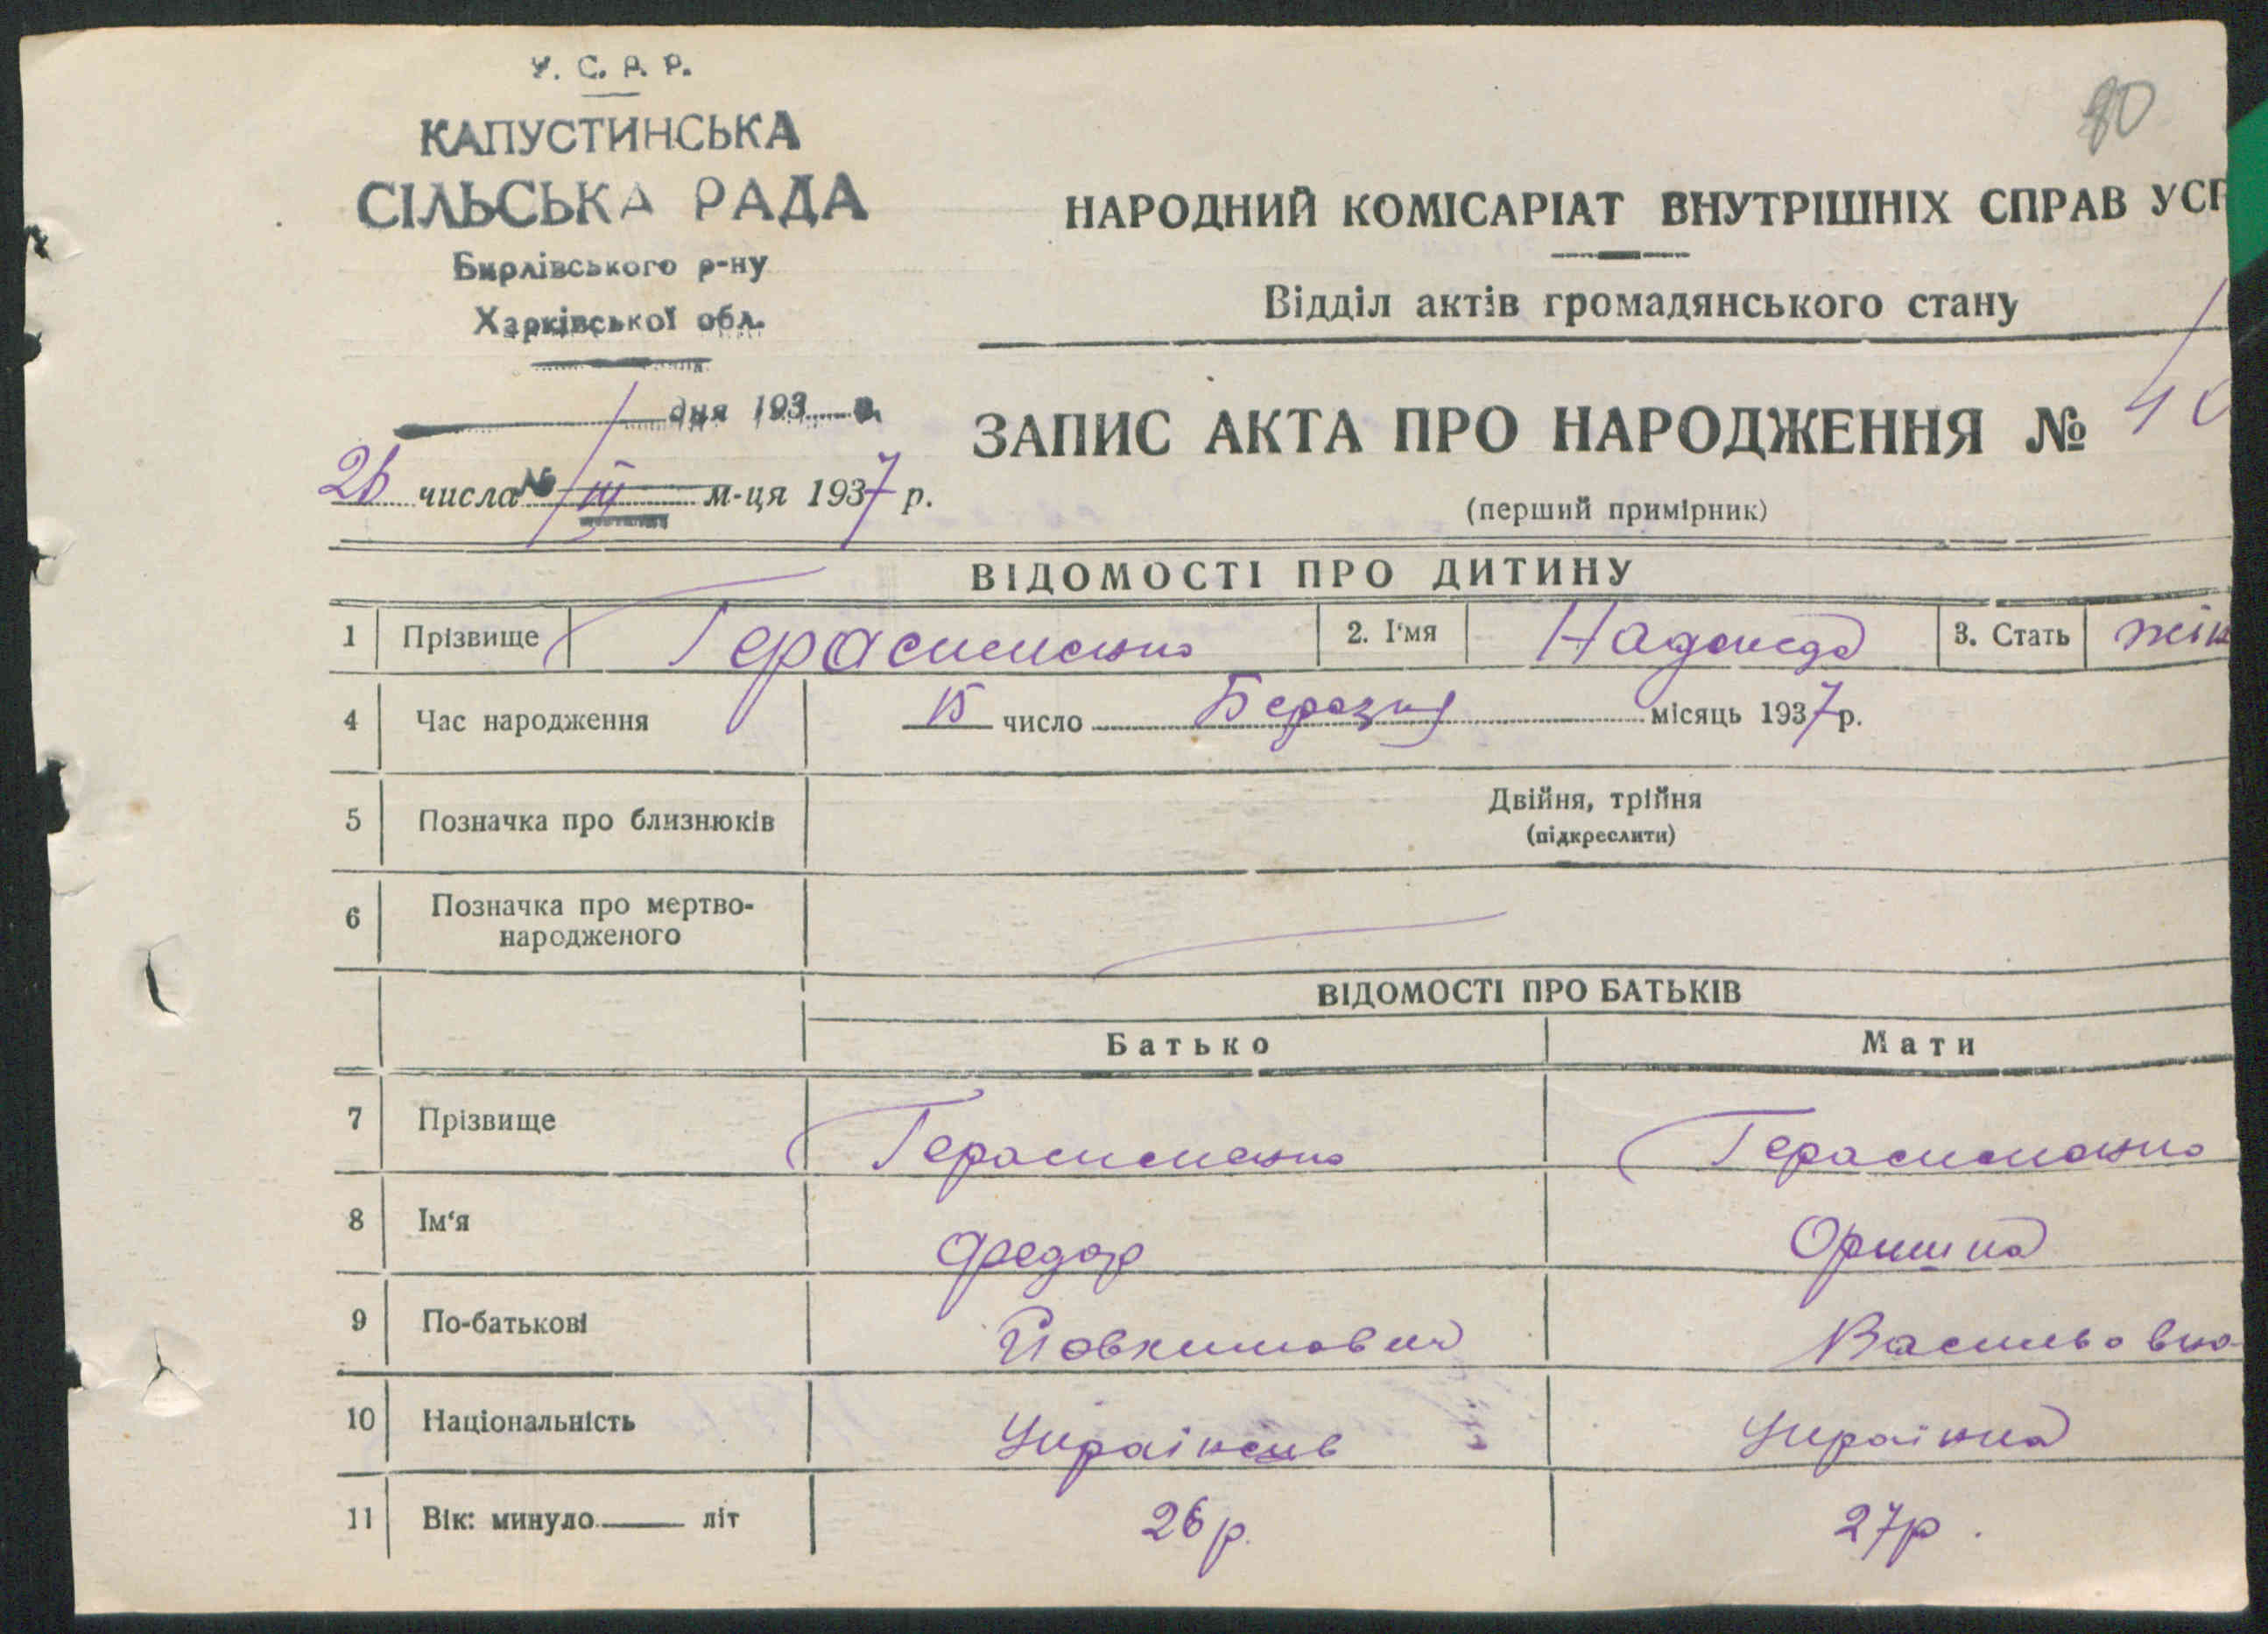 У. С. Р. Р.
КАПУСТИНСЬКА
СІЛЬСЬКА РАДА
Бирлівського р-ну
Харківської обл.
дня 193 р.
№
80
НАРОДНИЙ КОМІСАРІАТ ВНУТРІШНІХ СПРАВ УСР
Відділ актів громадянського стану
ЗАПИС АКТА ПРО НАРОДЖЕННЯ № 40
(перший примірник)
26 числа III м-ця 1937 р.
ВІДОМОСТІ ПРО ДИТИНУ
1 Прізвище Герасименко 2. І'мя Надежда 3. Стать жін
4 Час народження 15 число Березня місяць 1937 р.
5 Позначка про близнюків Двійня, трійня
(підкреслити)
6 Позначка про мертво-
народженого
ВІДОМОСТІ ПРО БАТЬКІВ
Батько Мати
7 Прізвище Герасименко Герасименко
8 Ім'я Федор Оришка
9 По-батькові Йовхимович Васильовна
10 Національність Українець Українка
11 Вік: минуло літ 26 р. 27 р.